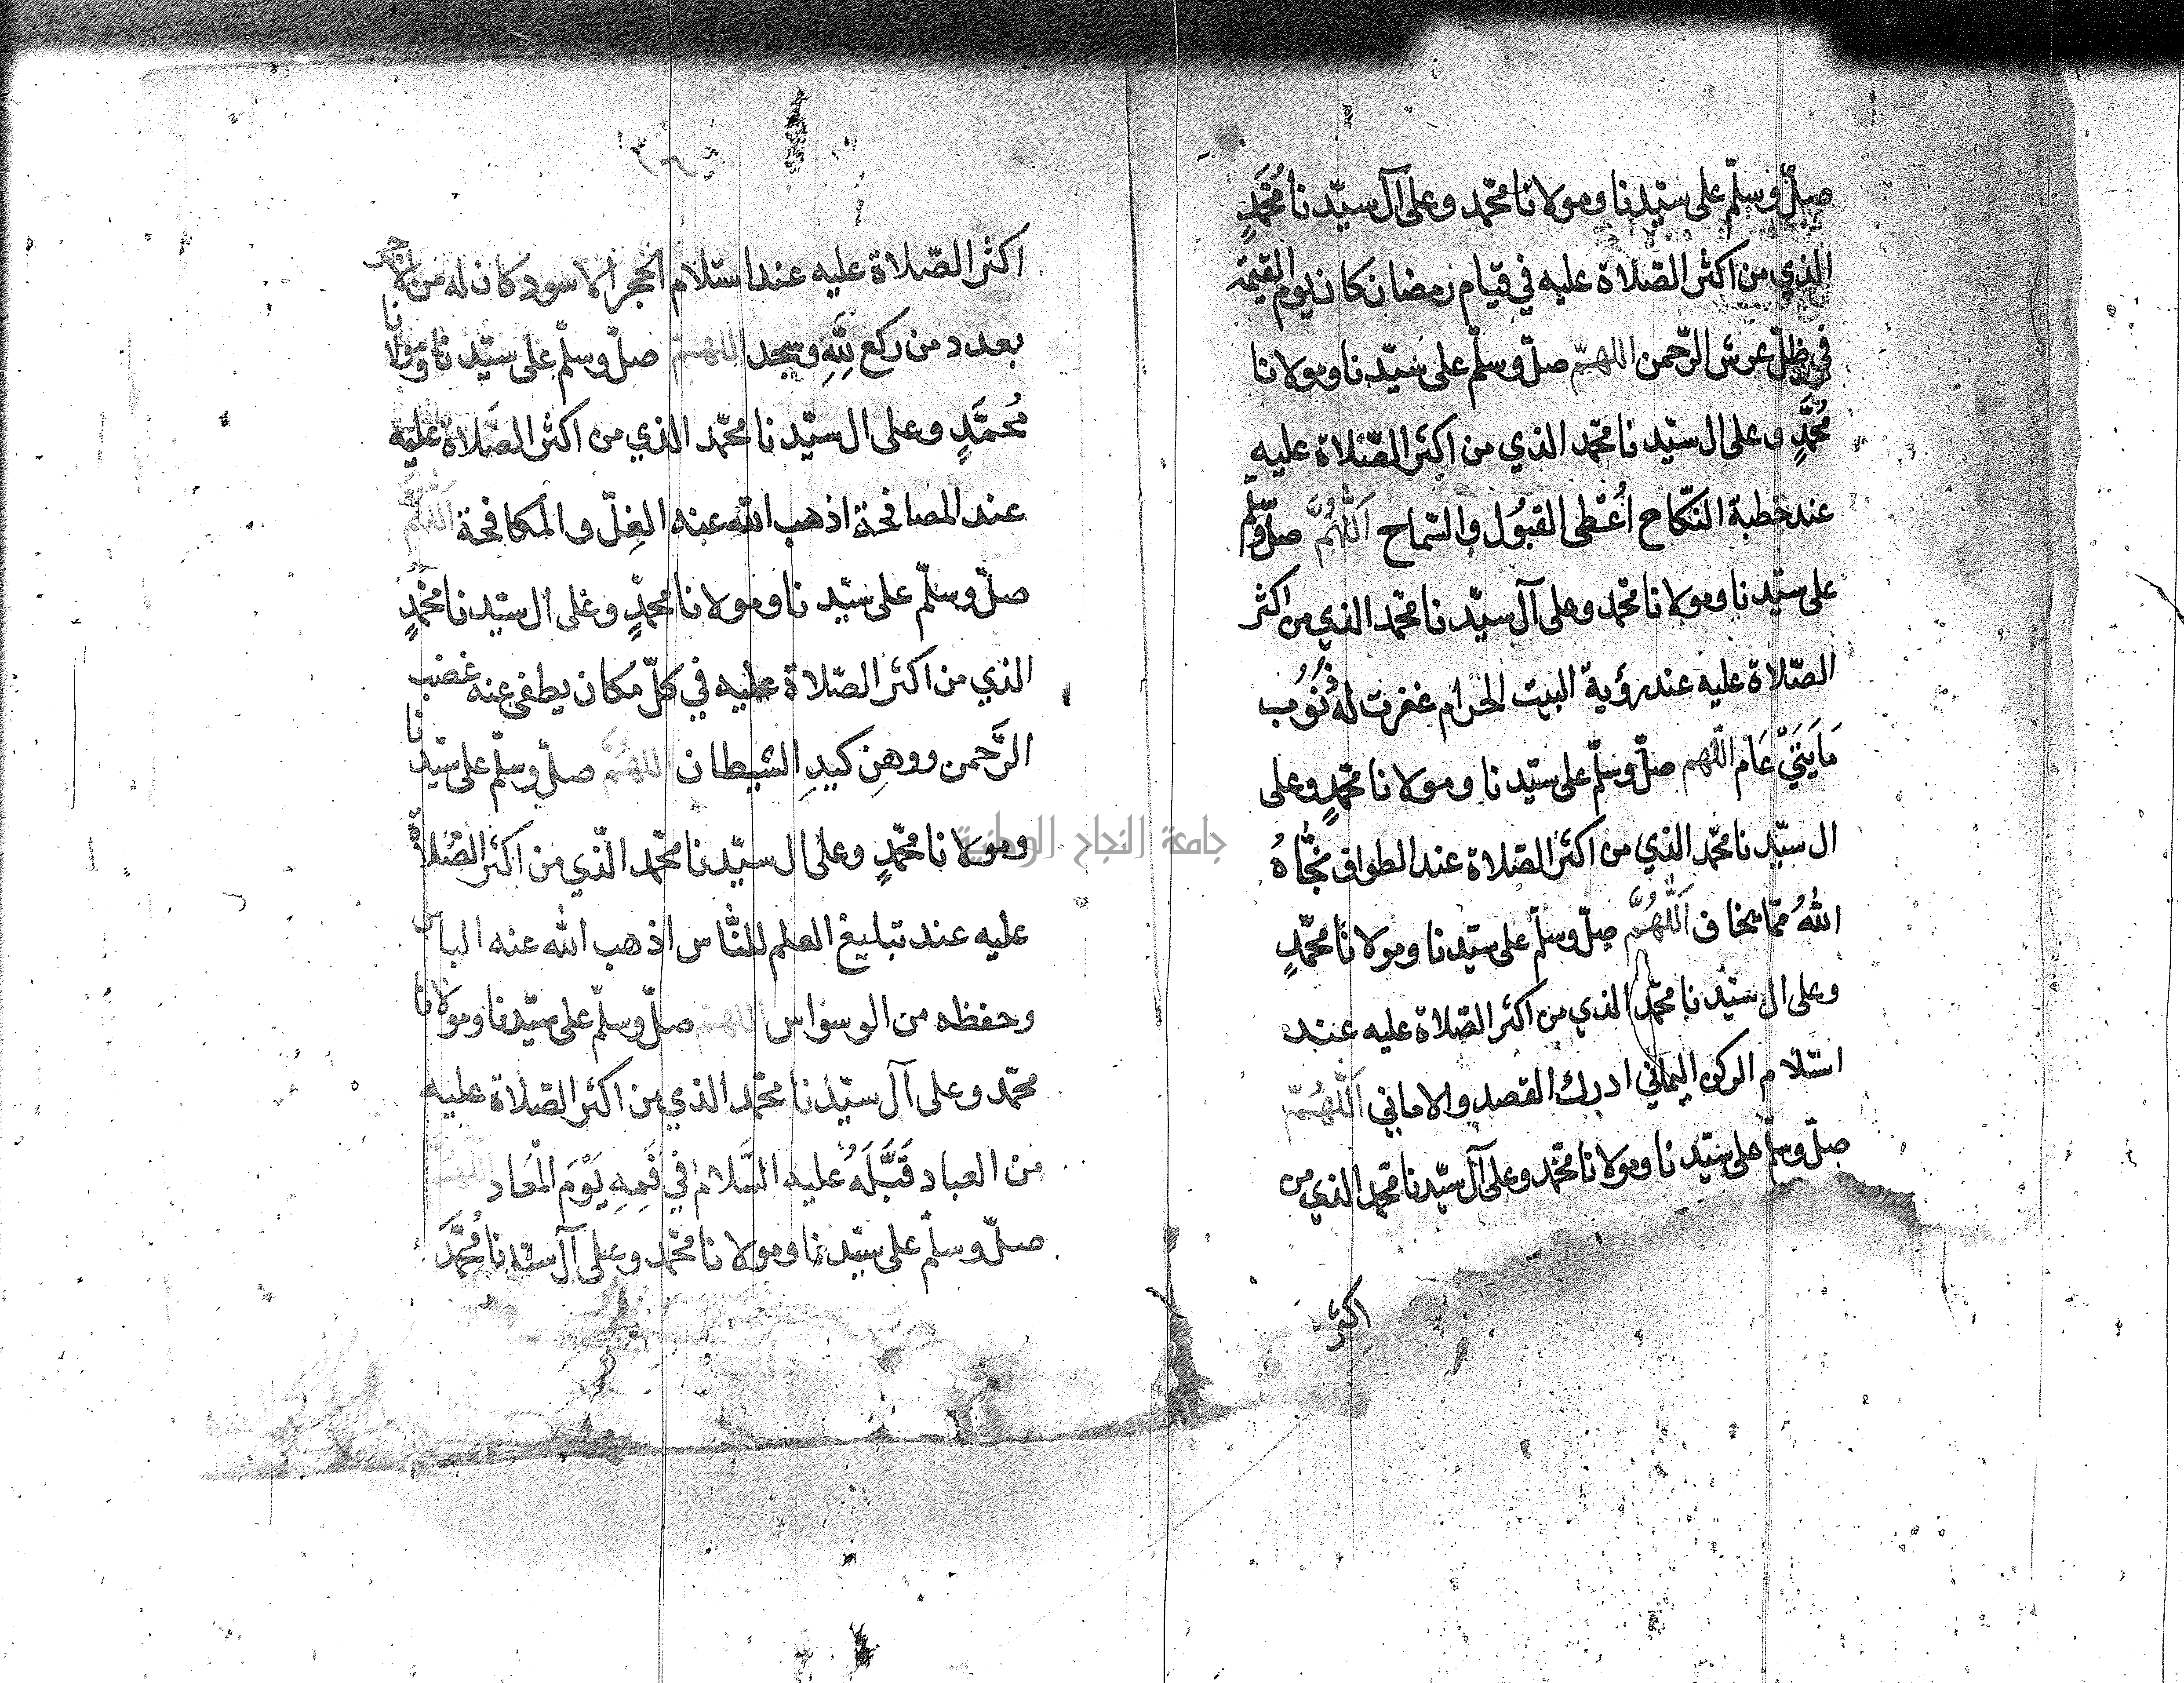 صلّ وسلّم على سيّدنا ومولانا محمّد وعلى آل سيّدنا مُحَمَّدٍ
الذي من اكثر الصّلاة عليه في قيام رمضان كان يوم القيمة
في ظلّ عرش الرّحمن اللهمّ صلّ وسلّم على سيّدنا ومولانا
مُحَمَّدٍ وعلى ال سيّدنا محمّد الذي من اكثر الصّلاة عليه
عند خطبة النكّاح أُعْطى القبُول والسّماح اَللّٰهُمَّ صلّ وسلّم
على سيّدنا ومولانا محمّد وعلى آل سيّدنا محمّد الذي من اكثر
الصّلاة عليه عند رؤية البيت الحرام غفرت له ذُنُوب
مَايَتَيْ عَام اللّهم صلّ وسلّم على سيّدنا ومولانا محمّدٍ وعلى
ال سيّدنا محمّد الذي من اكثر الصّلاة عند الطواف نجّاهُ
اللهُ ممّا يخاف اَللّٰهُمَّ صلّ وسلّم على سيّدنا ومولانا محمّدٍ
وعلى ال سيّدنا محمّد الذي من اكثر الصّلاة عليه عند
استلام الركن اليماني ادرك القصد والاماني اَللّٰهُمّ
صلّ وسلّم على سيّدنا ومولانا محمّد وعلى آل سيّدنا محمّد الذي من
اكثر
اكثر الصّلاة عليه عند استلام الحجر الاسود كان له من الاجر
بعدد من ركع لِلّٰهِ وسجد اللهمّ صلّ وسلّم على سيّدنا ومولانا
مُحمَّدٍ وعلى ال سيّدنا محمّد الذي من اكثر الصَّلاة عليه
عند المصافحة اذهب الله عنه الغِلّ والمكافحة اَللّٰهُمَّ
صلّ وسلّم على سيّدنا ومولانا محمّدٍ وعلى ال سيّدنا محمّدٍ
الذي من اكثر الصّلاة عليه في كلّ مكان يطفي عنه غضب
الرَّحمن ووهِن كيدِ الشيطان اللهُمَّ صلّ وسلّم على سيّدنا
ومولانا محمّدٍ وعلى ال سيّدنا محمّد الذي من اكثر الصّلاة
عليه عند تبليغ العلم للنّاس اذهب الله عنه الباس
وحفظه من الوسواس اللهمّ صلّ وسلّم على سيّدنا ومولانا
محمّد وعلى آل سيّدنا محمّد الذي من اكثر الصّلاة عليه
من العباد قَبَّلَهُ عليه السَّلام في فَمِهِ يَوْمَ الْمَعَاد اَللّٰهُمَّ
صلّ وسلّم على سيّدنا ومولانا محمّد وعلى آل سيّدنا مُحَمَّد
جامعة النجاح الوطنية